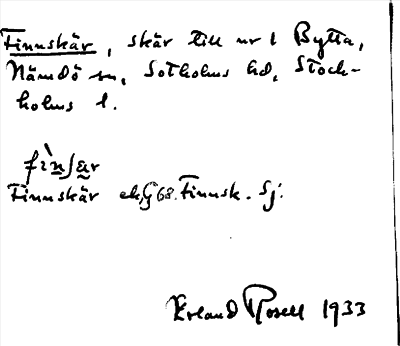 Finnskär, skär till nr 1 Bytta,
Nämdö sn, Sotholms hd, Stock-
holms l.
fìnʃær
Finnskär ek. G 68. Finnsk. Sj.
Erland Rosell 1933